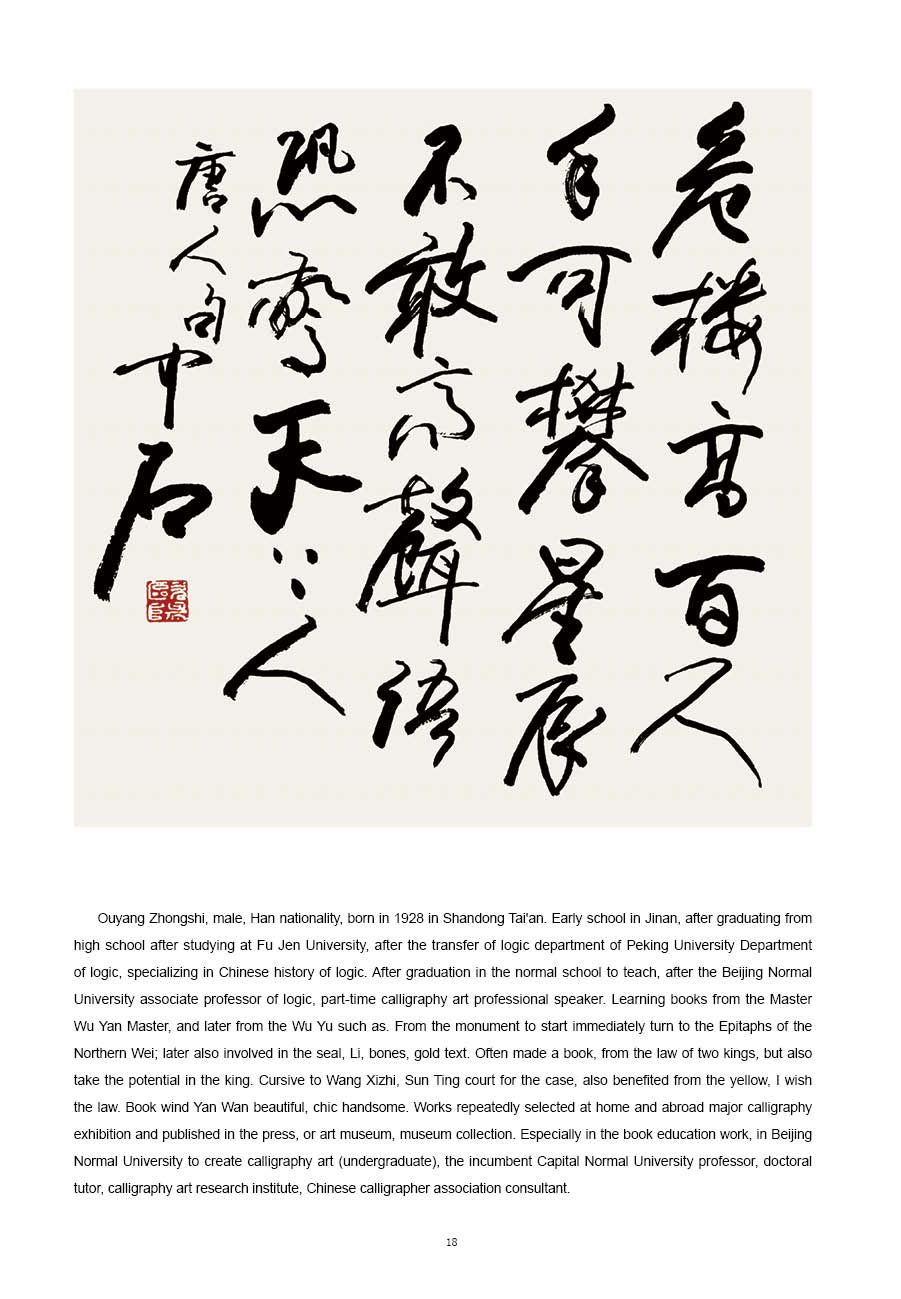 危楼高百尺
手可攀星辰
不敢高聲語
恐驚天上人
唐人句中石
Ouyang Zhongshi, male, Han nationality, born in 1928 in Shandong Tai'an. Early school in Jinan, after graduating from
high school after studying at Fu Jen University, after the transfer of logic department of Peking University Department
of logic, specializing in Chinese history of logic. After graduation in the normal school to teach, after the Beijing Normal
University associate professor of logic, part-time calligraphy art professional speaker. Learning books from the Master
Wu Yan Master, and later from the Wu Yu such as. From the monument to start immediately turn to the Epitaphs of the
Northern Wei; later also involved in the seal, Li, bones, gold text. Often made a book, from the law of two kings, but also
take the potential in the king. Cursive to Wang Xizhi, Sun Ting court for the case, also benefited from the yellow, I wish
the law. Book wind Yan Wan beautiful, chic handsome. Works repeatedly selected at home and abroad major calligraphy
exhibition and published in the press, or art museum, museum collection. Especially in the book education work, in Beijing
Normal University to create calligraphy art (undergraduate), the incumbent Capital Normal University professor, doctoral
tutor, calligraphy art research institute, Chinese calligrapher association consultant.
18